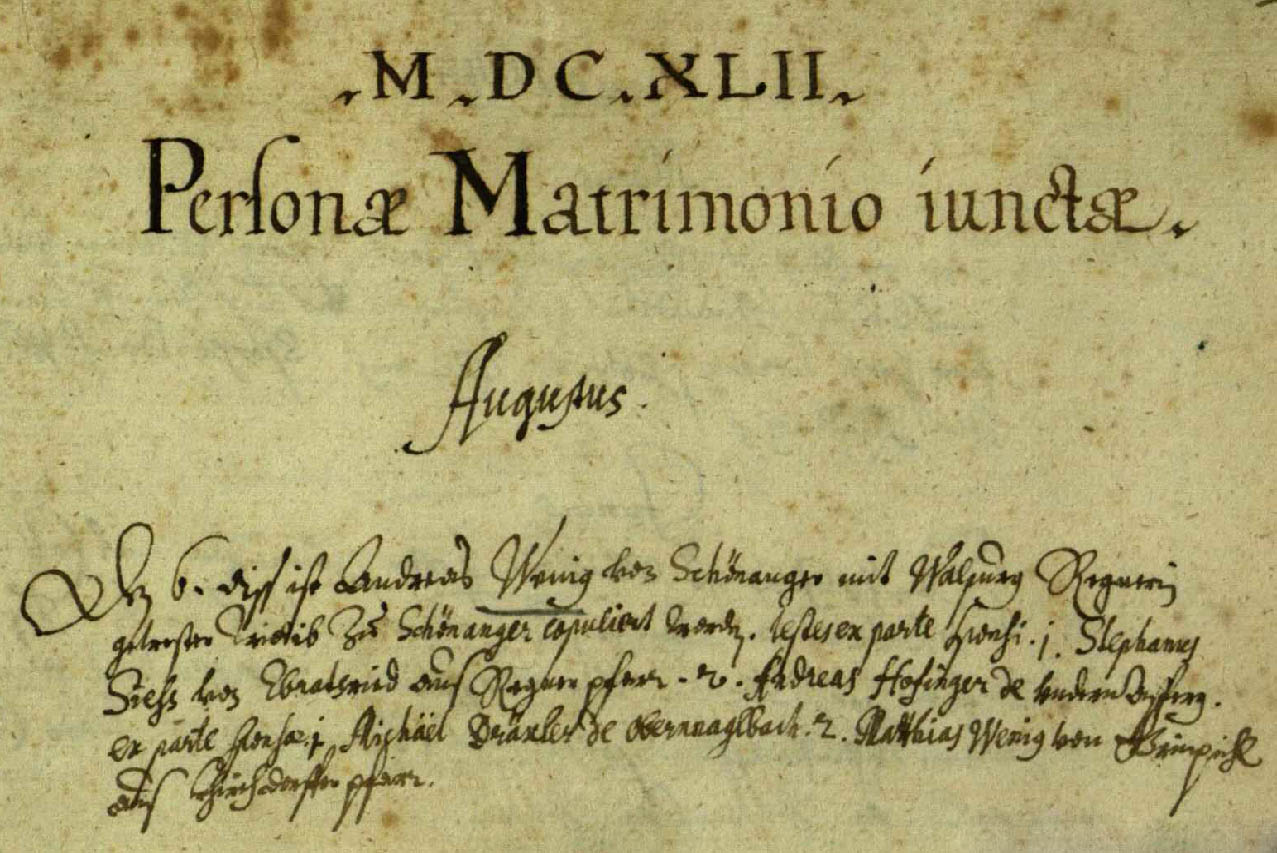 M DC XLII.
Personæ Matrimonio iunctæ.
Augustus.
Den 6. diss ist Andreas Wenig von Schönanger mit Walpurg Regnerin
zu Schönanger copuliert worden. testes ex parte sponsi. j. Stephanus
von Ebratsried aus Regner pfarr. 2. Andreas Hofinger de
ex parte sponsæ. j. Michäel Dräxler de Obernnaglbach. 2. Matthias Wenig von
aus Kirchdorffer pfarr.